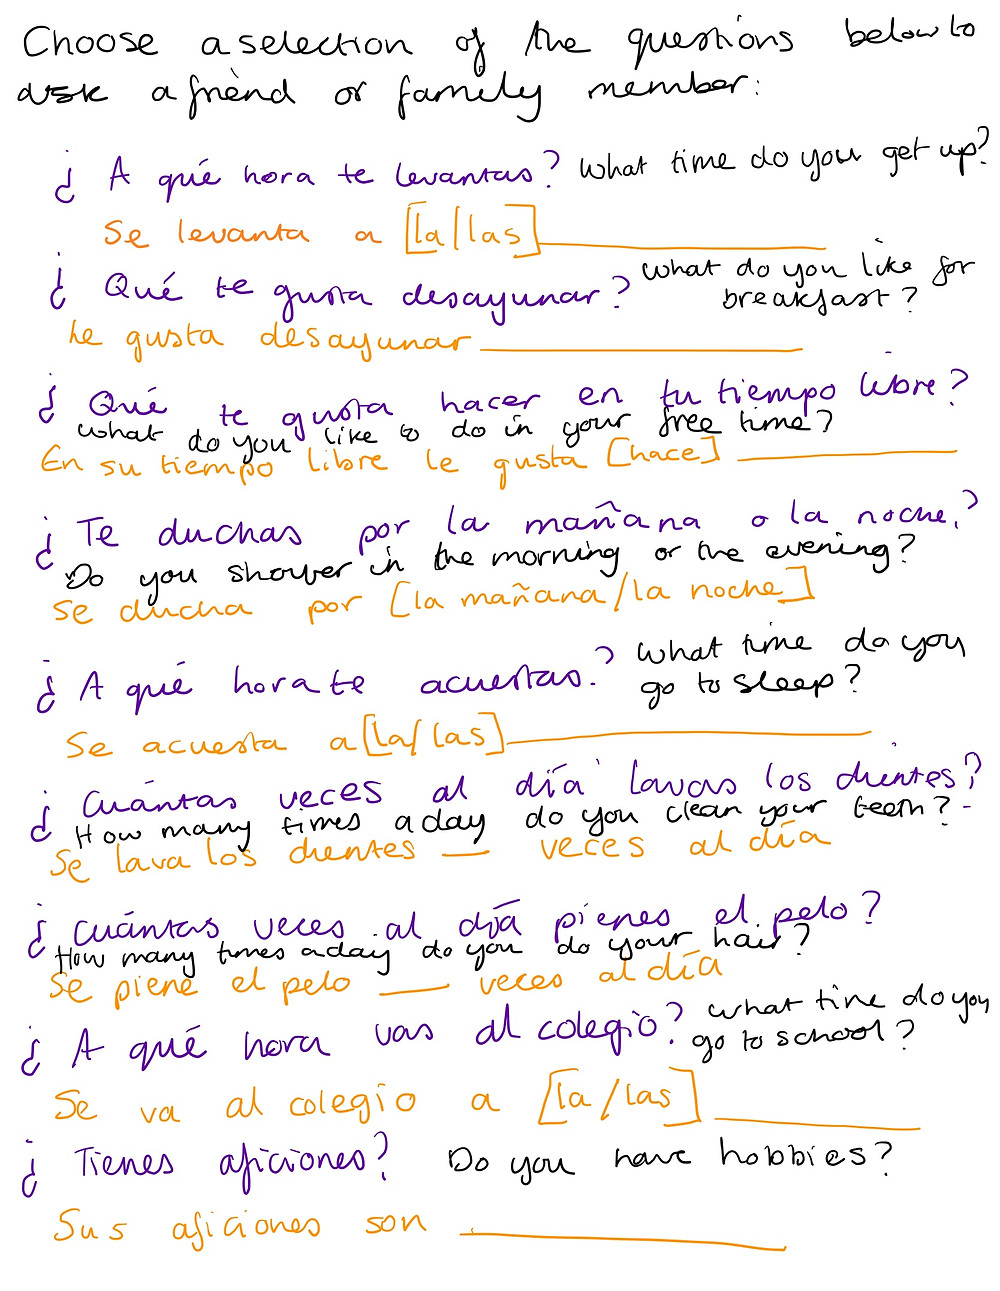 Choose a selection of the questions below to
ask a friend or family member:
¿ A qué hora te levantas? What time do you get up?
Se levanta a [la/las] __________
¿ Qué te gusta desayunar? What do you like for
breakfast?
Le gusta desayunar __________
¿ Qué te gusta hacer en tu tiempo libre?
What do you like to do in your free time?
En su tiempo libre le gusta [hace] __________
¿ Te duchas por la mañana o la noche?
Do you shower in the morning or the evening?
Se ducha por [la mañana/la noche]
¿ A qué hora te acuestas? What time do you
go to sleep?
Se acuesta a [la/las] __________
¿ Cuántas veces al día lavas los dientes?
How many times a day do you clean your teeth?
Se lava los dientes ___ veces al día
¿ Cuántas veces al día pienes el pelo?
How many times a day do you do your hair?
Se piene el pelo ___ veces al día
¿ A qué hora vas al colegio? What time do you
go to school?
Se va al colegio a [la/las] __________
¿ Tienes aficiones? Do you have hobbies?
Sus aficiones son __________